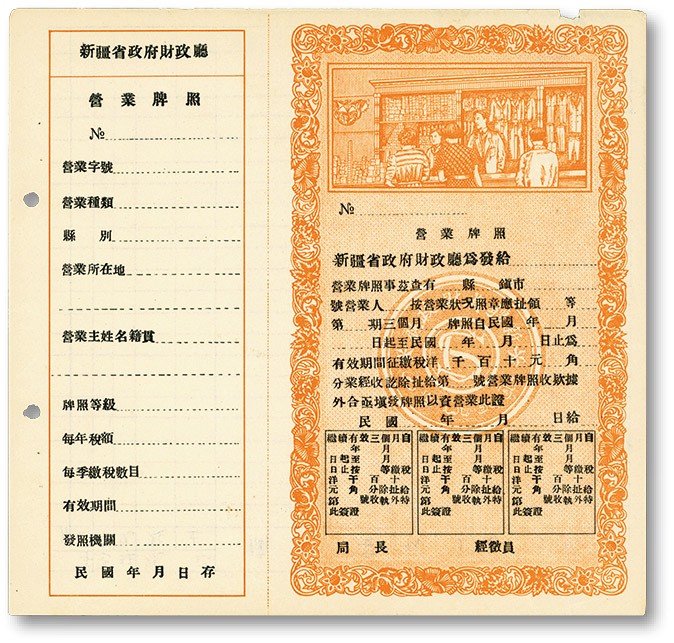 新疆省政府財政廳
營業牌照
№
營業字號
營業種類
縣 別
營業所在地
營業主姓名籍貫
牌照等級
每年稅額
每季繳稅數目
有效期間
發照機關
民國年月日存
№
營業牌照
新疆省政府財政廳爲發給
營業牌照事茲查有 縣 鎭市
號營業人 按營業狀況照章應扯領 等
第 期三個月 牌照自民國 年 月
日起至民國 年 月 日止爲
有效期間征繳稅洋 千 百 十 元 角
分業經收訖除扯給第 號營業牌照收欵據
外合亟塡發牌照以資營業此證
民國 年 月 日給
繼續有效三個月自
年 月
日起至 月
日止按 等繳稅
洋 千 百 十
元 角 分除扯給
第 號收執外特
此簽證
繼續有效三個月自
年 月
日起至 月
日止按 等繳稅
洋 千 百 十
元 角 分除扯給
第 號收執外特
此簽證
繼續有效三個月自
年 月
日起至 月
日止按 等繳稅
洋 千 百 十
元 角 分除扯給
第 號收執外特
此簽證
局 長 經徵員